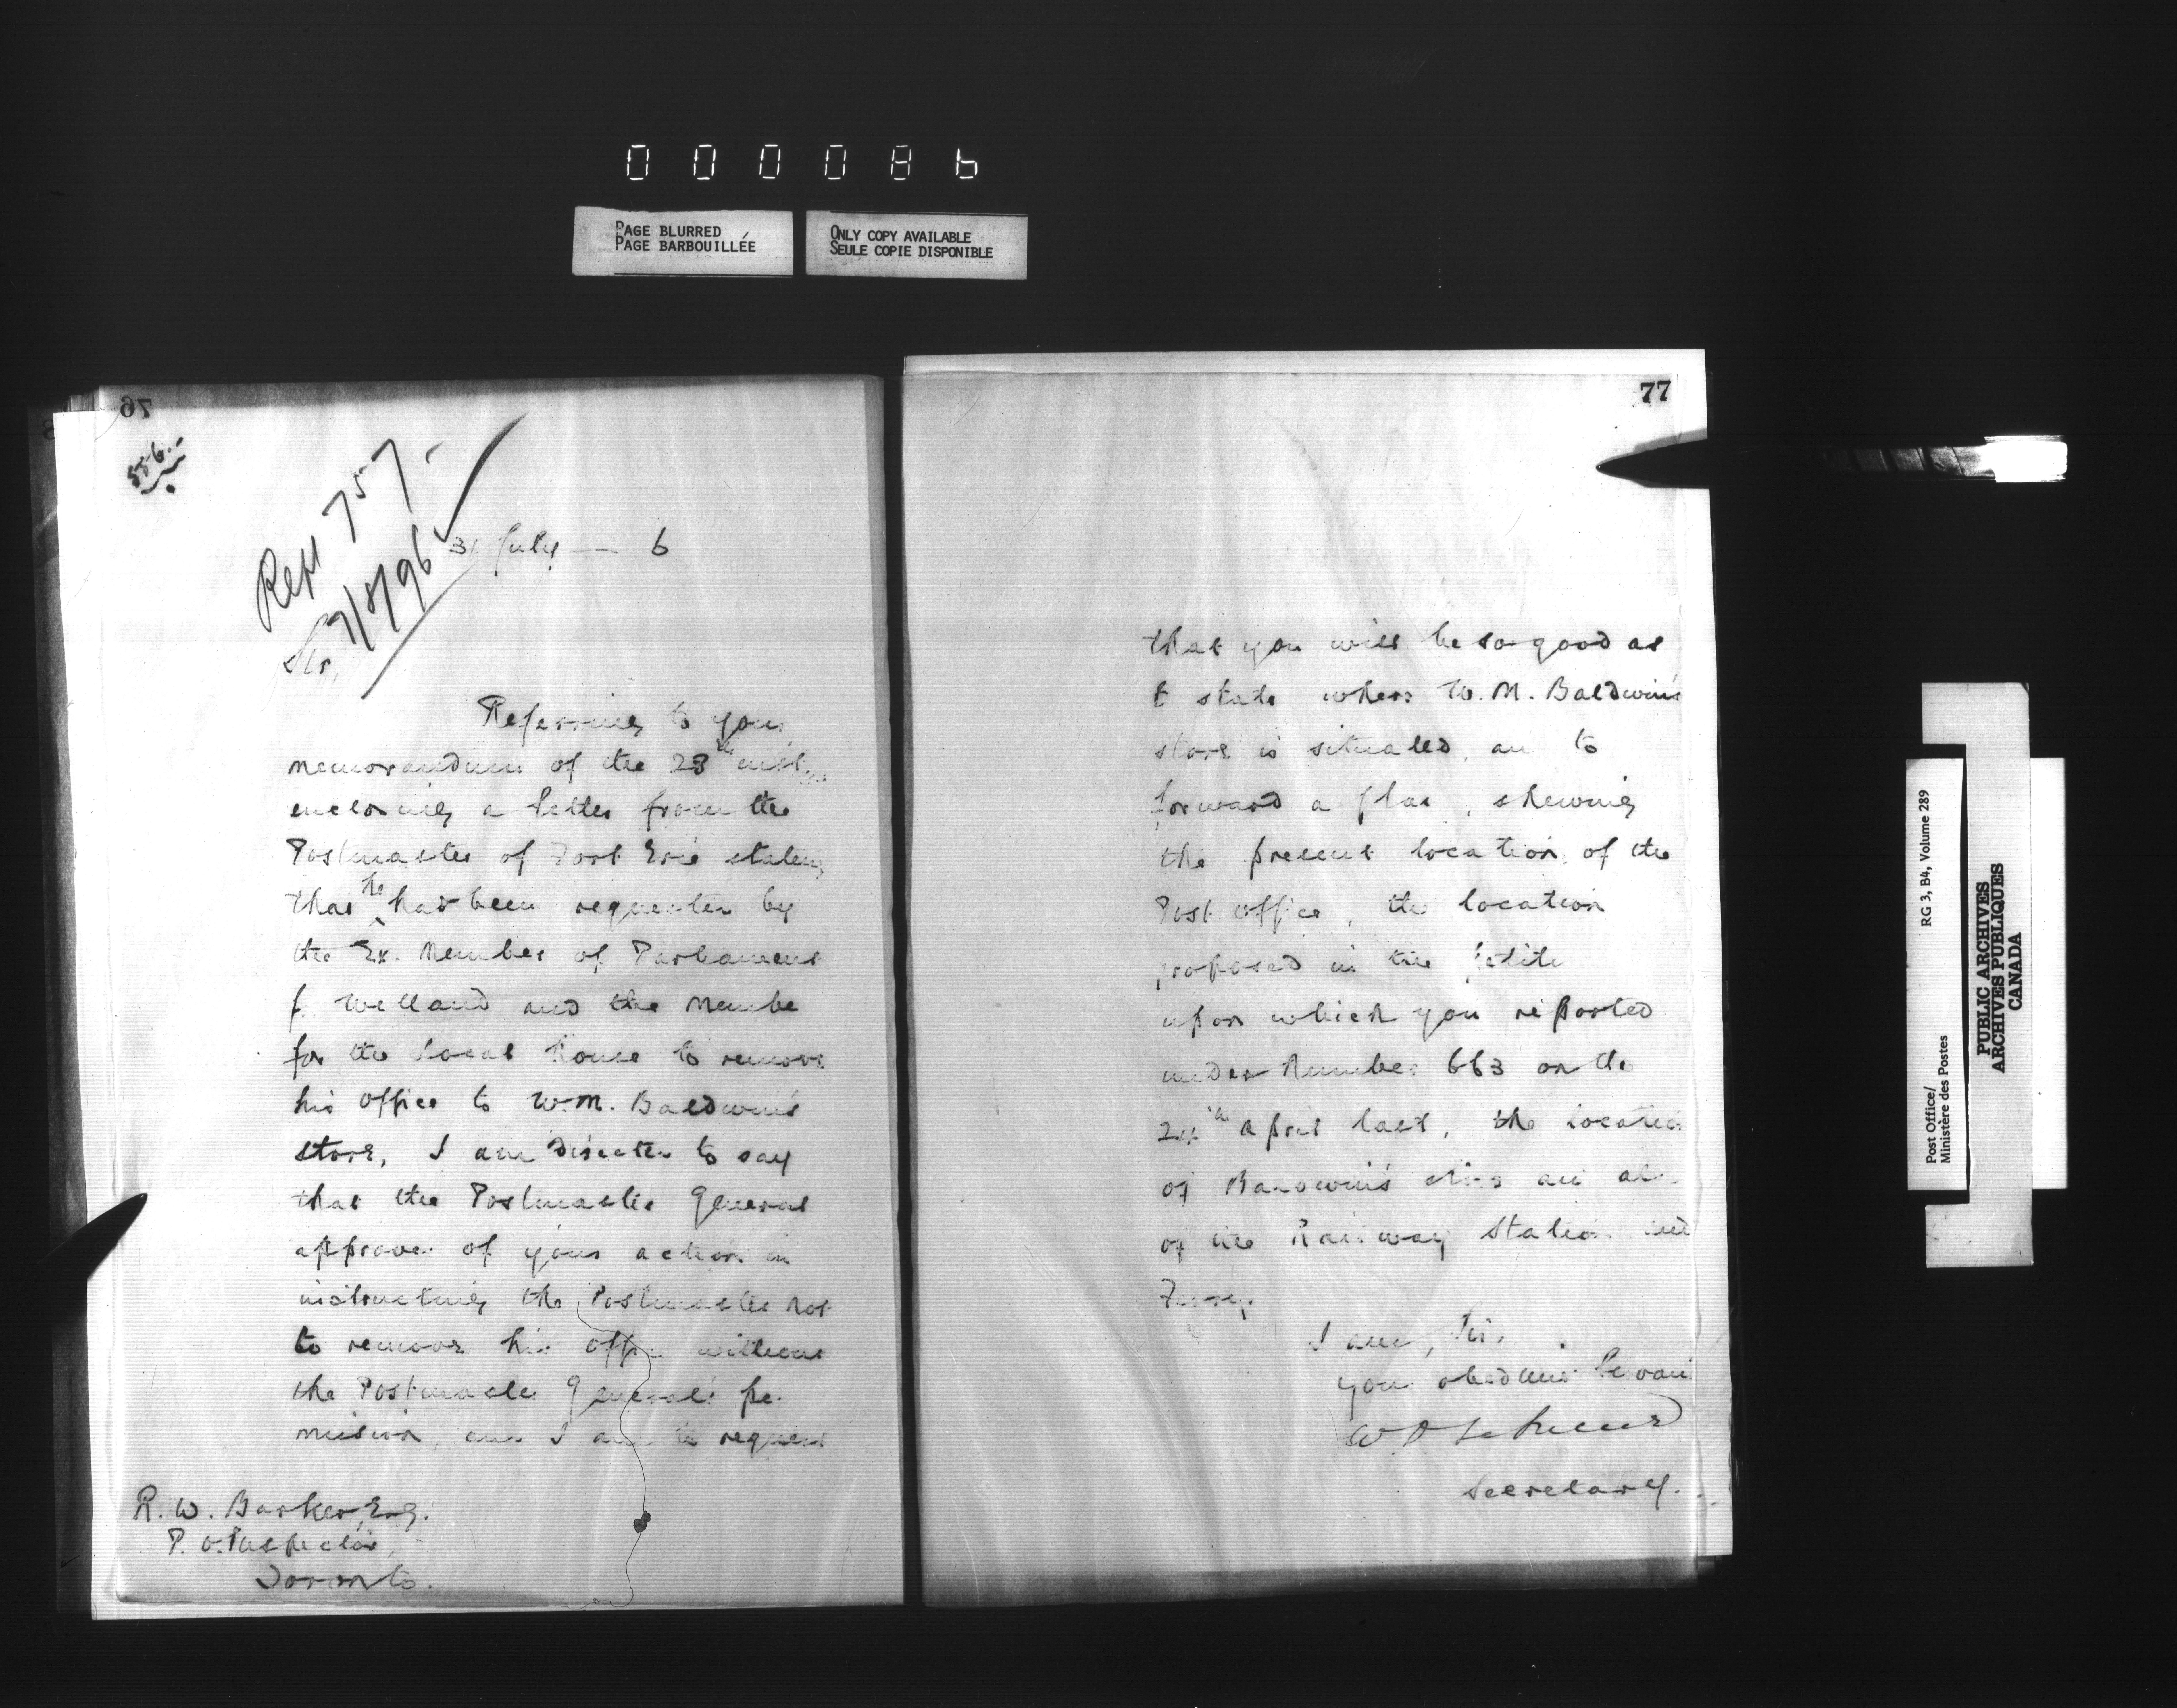 000086
PAGE BLURRED
PAGE BARBOUILLÉE
ONLY COPY AVAILABLE
SEULE COPIE DISPONIBLE
76
556.-
Rept 757-
7/8/96
31 July — 6
Sir,
Referring to your
memorandum of the 23rd inst.,
enclosing a letter from the
Postmaster of Fort Erie stating
that he has been requested by
the Ex. Member of Parliament
f Welland and the Membe
for the Local House to remove
his office to W. M. Baldwin's
store, I am directed to say
that the Postmaster General
approves of your action in
instructing the Postmaster not
to remove his office without
the Postmaster General's per-
mission, and I am to request
R. W. Barker, Esq.
P. O. Inspector,
Toronto.
77
that you will be so good as
t state where W. M. Baldwin's
store is situated, an to
forward a plan, shewing
the present location of the
Post Office, the location
proposed in the petitio
upon which you reported
under Number 663 on the
24th April last, the location
of Baldwin's store and al
of the Railway Station and
Ferry.
I am, Sir,
your obedient Servant
Secretary.
Post Office/
Ministère des Postes
RG 3, B4, Volume 289
PUBLIC ARCHIVES
ARCHIVES PUBLIQUES
CANADA